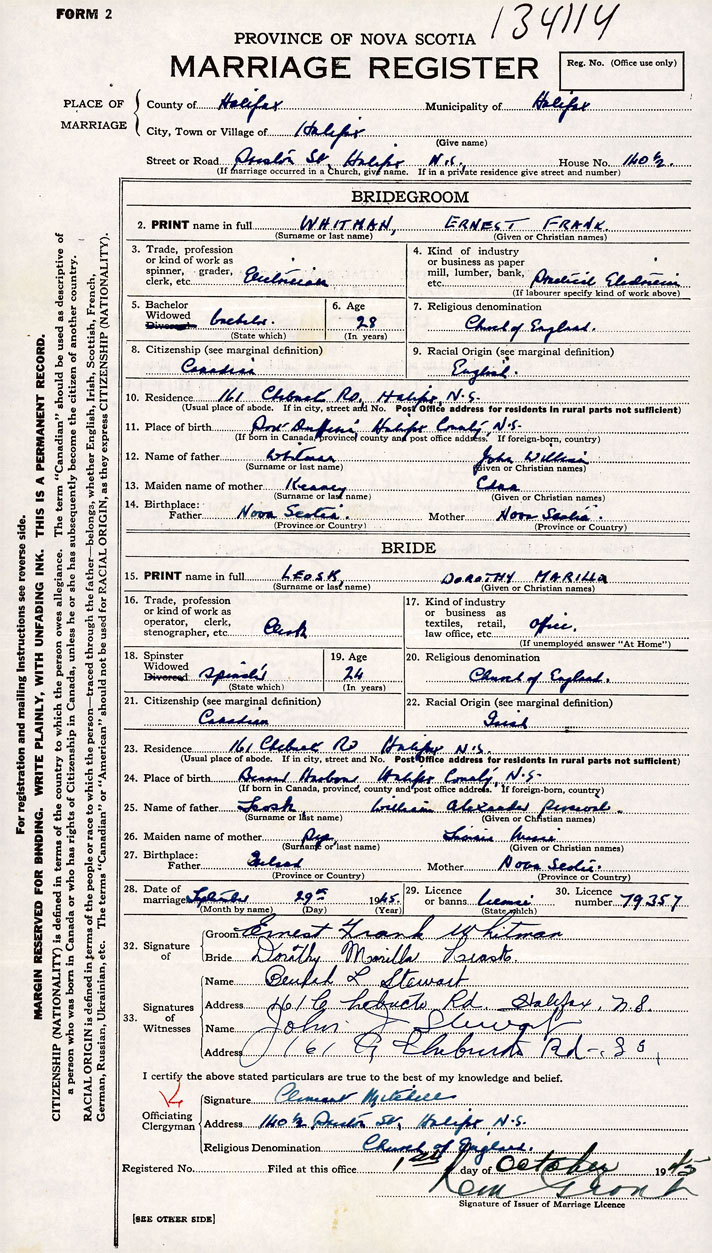 FORM 2
134114
PROVINCE OF NOVA SCOTIA
MARRIAGE REGISTER
Reg. No. (Office use only)
PLACE OF MARRIAGE
County of Halifax Municipality of Halifax
City, Town or Village of Halifax
(Give name)
Street or Road Preston St, Halifax N.S. House No. 140½
(If marriage occurred in a Church, give name. If in a private residence give street and number)
BRIDEGROOM
2. PRINT name in full WHITMAN, ERNEST FRANK.
(Surname or last name) (Given or Christian names)
3. Trade, profession or kind of work as spinner, grader, clerk, etc. Electrician
4. Kind of industry or business as paper mill, lumber, bank, etc. Practical Electrician
(If labourer specify kind of work above)
5. Bachelor Widowed Divorced bachelor.
(State which)
6. Age 28
(In years)
7. Religious denomination
Church of England.
8. Citizenship (see marginal definition)
Canadian
9. Racial Origin (see marginal definition)
English.
10. Residence 161 Chebucto Rd, Halifax, N.S.
(Usual place of abode. If in city, street and No. Post Office address for residents in rural parts not sufficient)
11. Place of birth Port Dufferin Halifax County, N.S.
(If born in Canada, province, county and post office address. If foreign-born, country)
12. Name of father Whitman John William
(Surname or last name) (Given or Christian names)
13. Maiden name of mother Edna
(Surname or last name) (Given or Christian names)
14. Birthplace:
Father Nova Scotia. Mother Nova Scotia.
(Province or Country) (Province or Country)
BRIDE
15. PRINT name in full LEOSK, DOROTHY MARILLA
(Surname or last name) (Given or Christian names)
16. Trade, profession or kind of work as operator, clerk, stenographer, etc. Clerk
17. Kind of industry or business as textiles, retail, law office, etc. Office.
(If unemployed answer "At Home")
18. Spinster Widowed Divorced Spinster
(State which)
19. Age 24
(In years)
20. Religious denomination
Church of England.
21. Citizenship (see marginal definition)
Canadian
22. Racial Origin (see marginal definition)
23. Residence 161 Chebucto Rd Halifax N.S.
(Usual place of abode. If in city, street and No. Post Office address for residents in rural parts not sufficient)
24. Place of birth Harbour Halifax County, N.S.
(If born in Canada, province, county and post office address. If foreign-born, country)
25. Name of father Leosk William Alexander
(Surname or last name) (Given or Christian names)
26. Maiden name of mother
(Surname or last name) (Given or Christian names)
27. Birthplace:
Father Mother Nova Scotia.
(Province or Country) (Province or Country)
28. Date of marriage September 29th 1945.
(Month by name) (Day) (Year)
29. Licence or banns. License
(State which)
30. Licence number 79357
32. Signature of
Groom Ernest Frank Whitman
Bride Dorothy Marilla Leask.
33. Signatures of Witnesses
Name Beulah L Stewart
Address 161 A Chebucto Rd. Halifax, N.S.
Name John J Stewart
Address 161 A Chebucto Rd
I certify the above stated particulars are true to the best of my knowledge and belief.
Officiating Clergyman
Signature Clement Mitchell
Address 140½ Preston St, Halifax N.S.
Religious Denomination Church of England.
Registered No. Filed at this office 1st day of October 1945
Signature of Issuer of Marriage Licence
[SEE OTHER SIDE]
For registration and mailing instructions see reverse side.
MARGIN RESERVED FOR BINDING. WRITE PLAINLY, WITH UNFADING INK. THIS IS A PERMANENT RECORD.
CITIZENSHIP (NATIONALITY) is defined in terms of the country to which the person owes allegiance. The term "Canadian" should be used as descriptive of
a person who was born in Canada or who has rights of Citizenship in Canada, unless he or she has subsequently become the citizen of another country.
RACIAL ORIGIN is defined in terms of the people or race to which the person—traced through the father—belongs, whether English, Irish, Scottish, French,
German, Russian, Ukrainian, etc. The terms "Canadian" or "American" should not be used for RACIAL ORIGIN, as they express CITIZENSHIP (NATIONALITY).